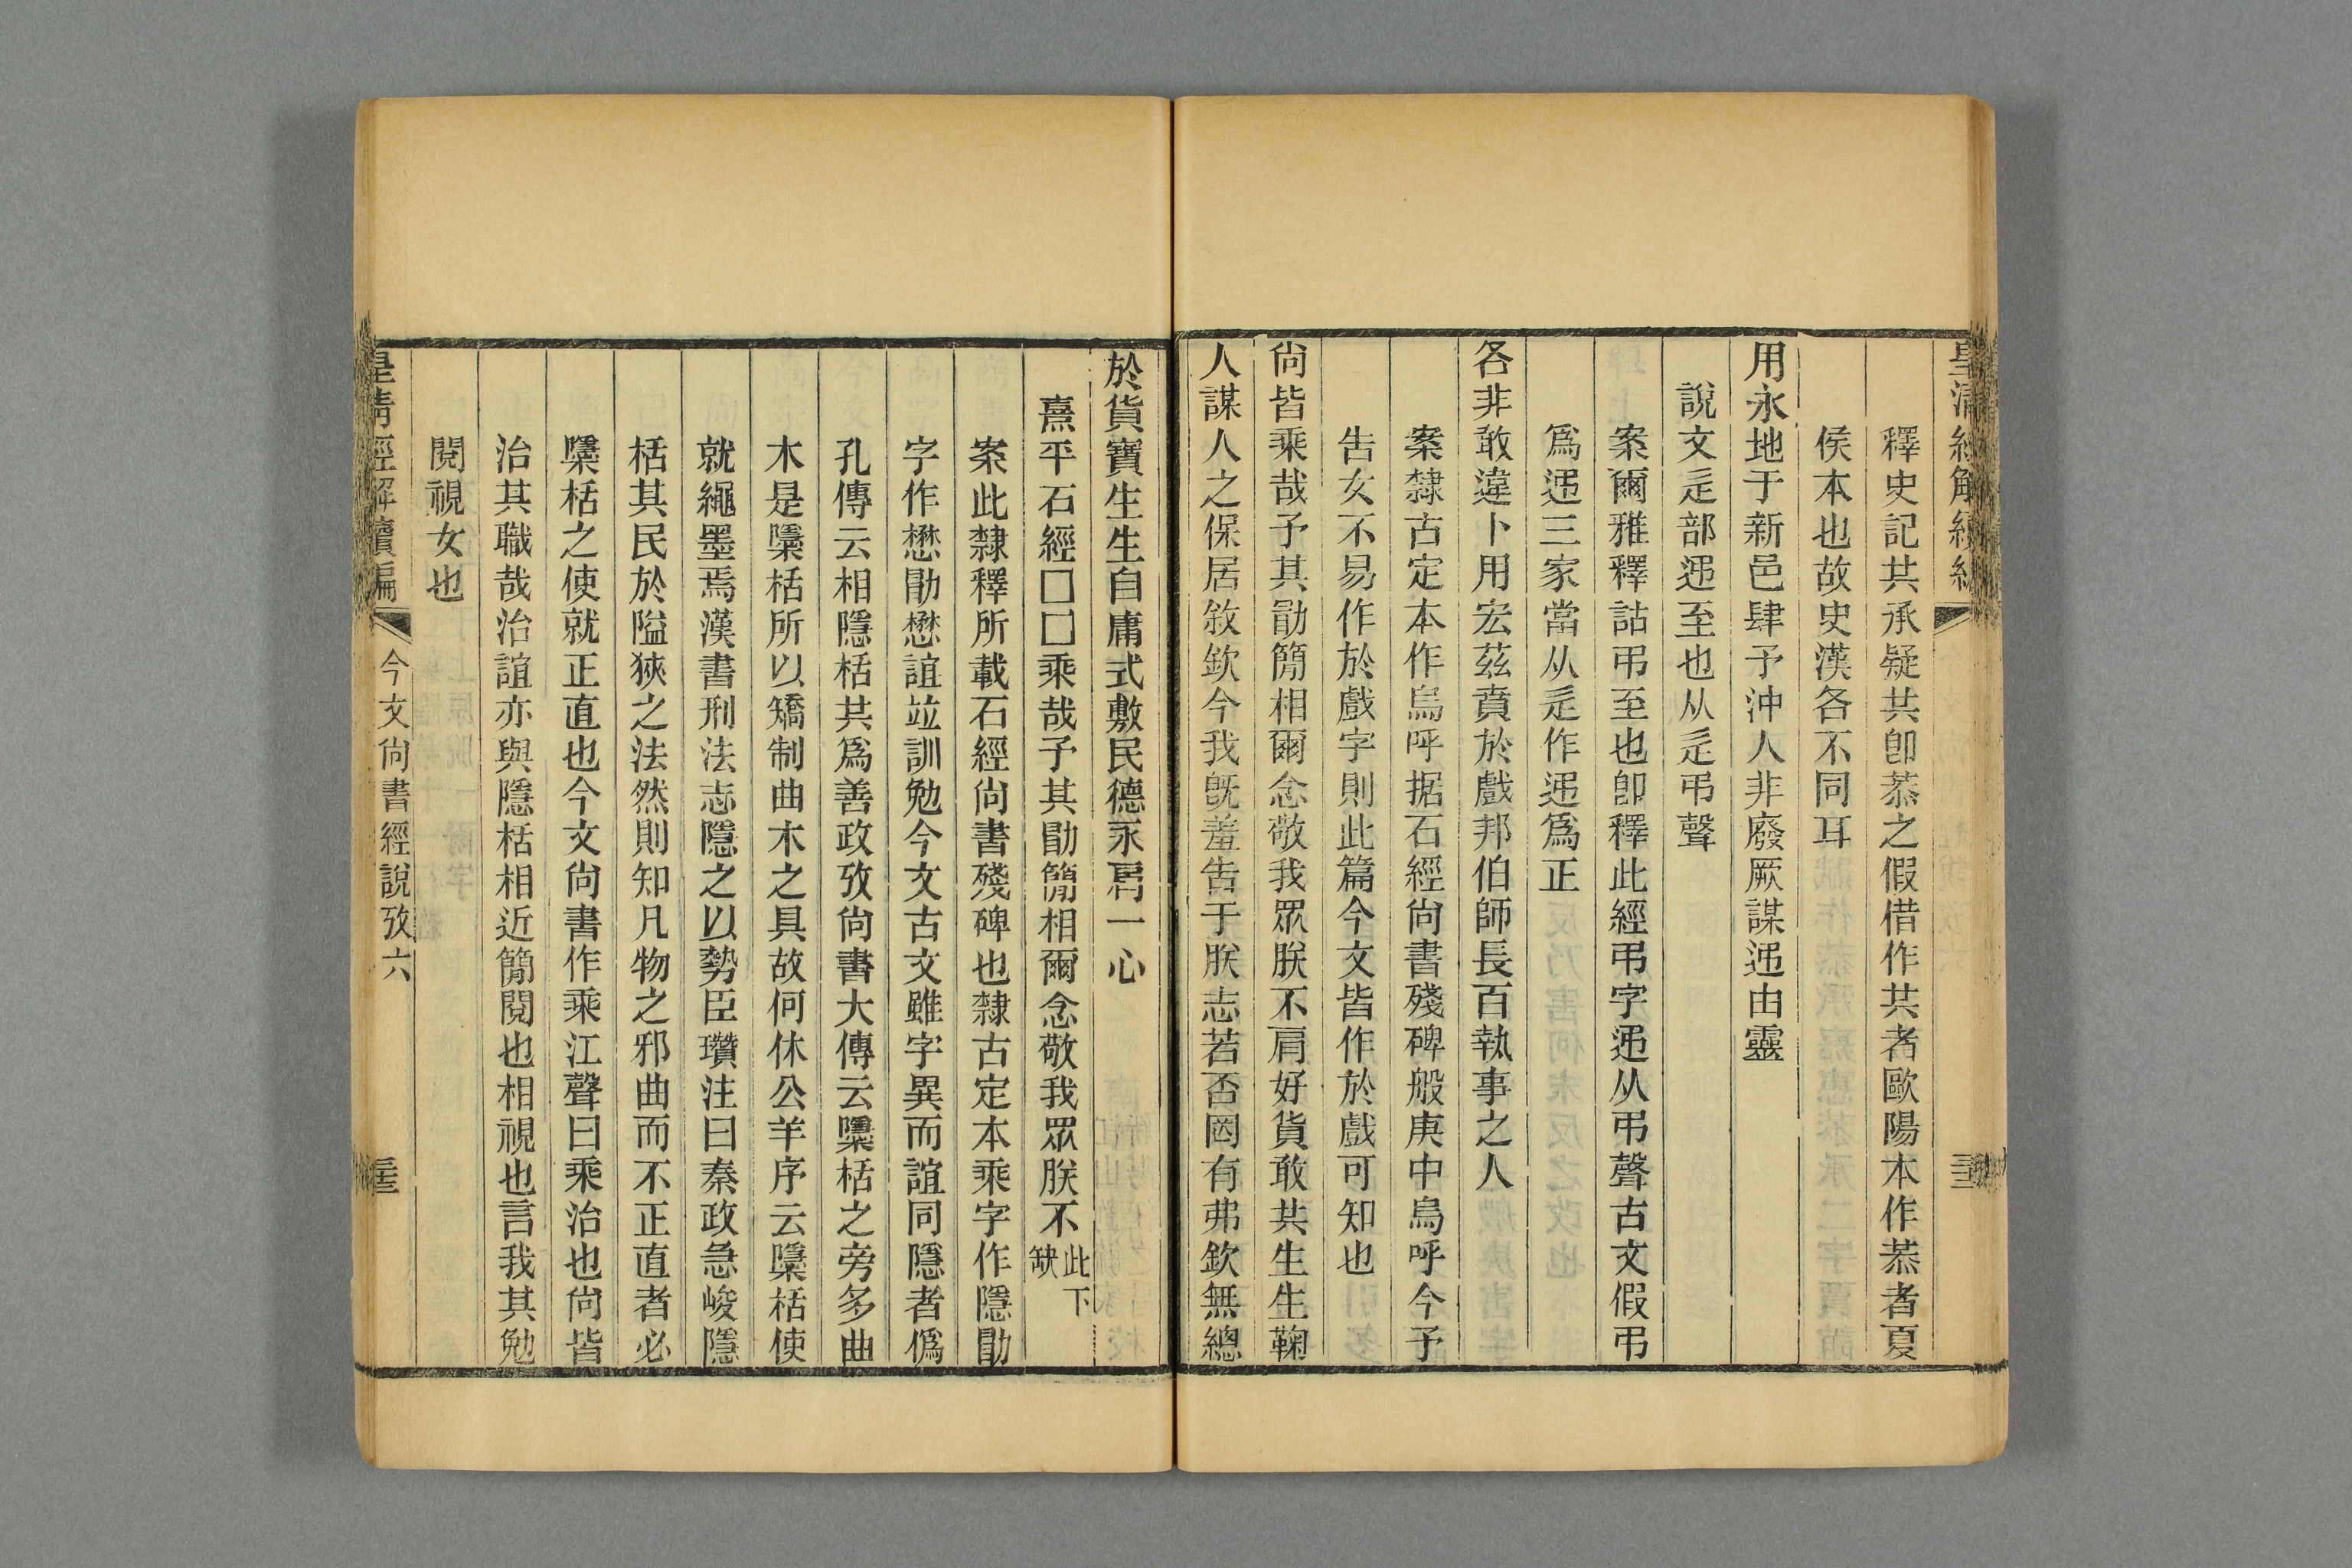 釋史記共承疑共卽恭之假借作共者歐陽本作恭者夏
侯本也故史漢各不同耳
用永地于新邑肆予沖人非廢厥謀𨒫由靈
說文辵部𨒫至也从辵弔聲
案爾雅釋詁弔至也卽釋此經弔字𨒫从弔聲古文假弔
爲𨒫三家當从辵作𨒫爲正
各非敢違卜用宏茲賁於戲邦伯師長百執事之人
案隸古定本作烏呼据石經尙書殘碑般庚中烏呼今予
告女不易作於戲字則此篇今文皆作於戲可知也
尙皆乘哉予其勖簡相爾念敬我眾朕不肩好貨敢共生生鞠
人謀人之保居敘欽今我旣羞告于朕志若否罔有弗欽無總
於貨寶生生自庸式敷民德永肩一心
熹平石經□□乘哉予其勖簡相爾念敬我眾朕不此下缺
案此隸釋所載石經尙書殘碑也隸古定本乘字作隱勖
字作懋勖懋誼竝訓勉今文古文雖字異而誼同隱者僞
孔傳云相隱栝共爲善政攷尙書大傳云檃栝之旁多曲
木是檃栝所以矯制曲木之具故何休公羊序云檃栝使
就繩墨焉漢書刑法志隱之以勢臣瓚注曰秦政急峻隱
栝其民於隘狹之法然則知凡物之邪曲而不正直者必
檃栝之使就正直也今文尙書作乘江聲曰乘治也尙皆
治其職哉治誼亦與隱栝相近簡閱也相視也言我其勉
閱視女也
皇淸經解續編
今文尙書經說攷六